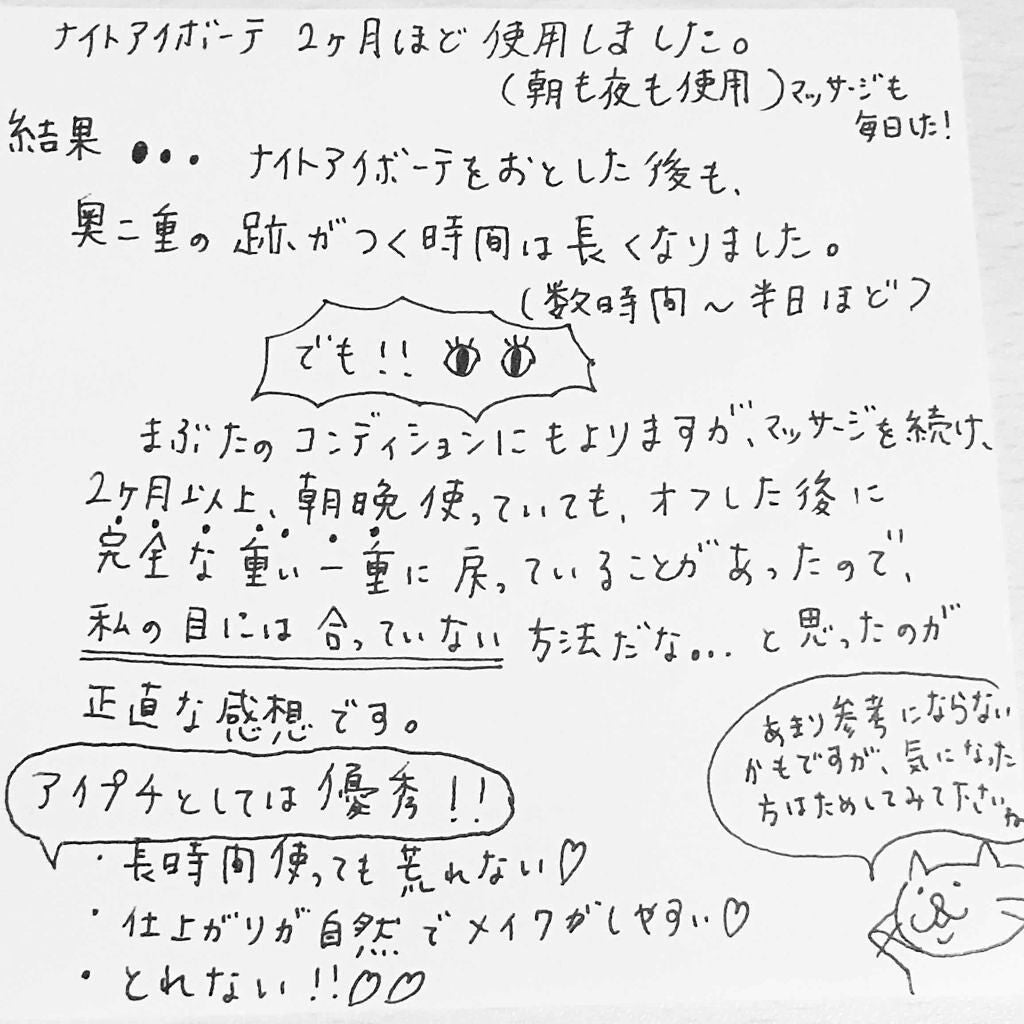 ナイトアイボーテ 2ヶ月ほど使用しました。
(朝も夜も使用)マッサージも
毎日した!
結果 ●●● ナイトアイボーテをおとした後も、
奥二重の跡がつく時間は長くなりました。
(数時間〜半日ほど)
でも!!
まぶたのコンディションにもよりますが、マッサージを続け、
2ヶ月以上、朝晩使っていても、オフした後に
完全な重い一重に戻っていることがあったので、
私の目には合っていない方法だな...と思ったのが
正直な感想です。
アイプチとしては優秀!!
・長時間使っても荒れない♡
・仕上がりが自然でメイクがしやすい♡
・とれない!!♡♡
あまり参考にならない
かもですが、気になった
方はためしてみて下さいね